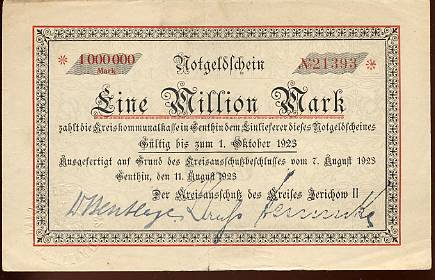 1 000 000 Notgeldschein № 21393
Mark
Eine Million Mark
zahlt die Kreiskommunalkasse in Genthin dem Einlieferer dieses Notgeldscheines
Gültig bis zum 1. Oktober 1923
Ausgefertigt auf Grund des Kreisausschußbeschlusses vom 7. August 1923
Genthin, den 11. August 1923
Der Kreisausschuß des Kreises Jerichow II